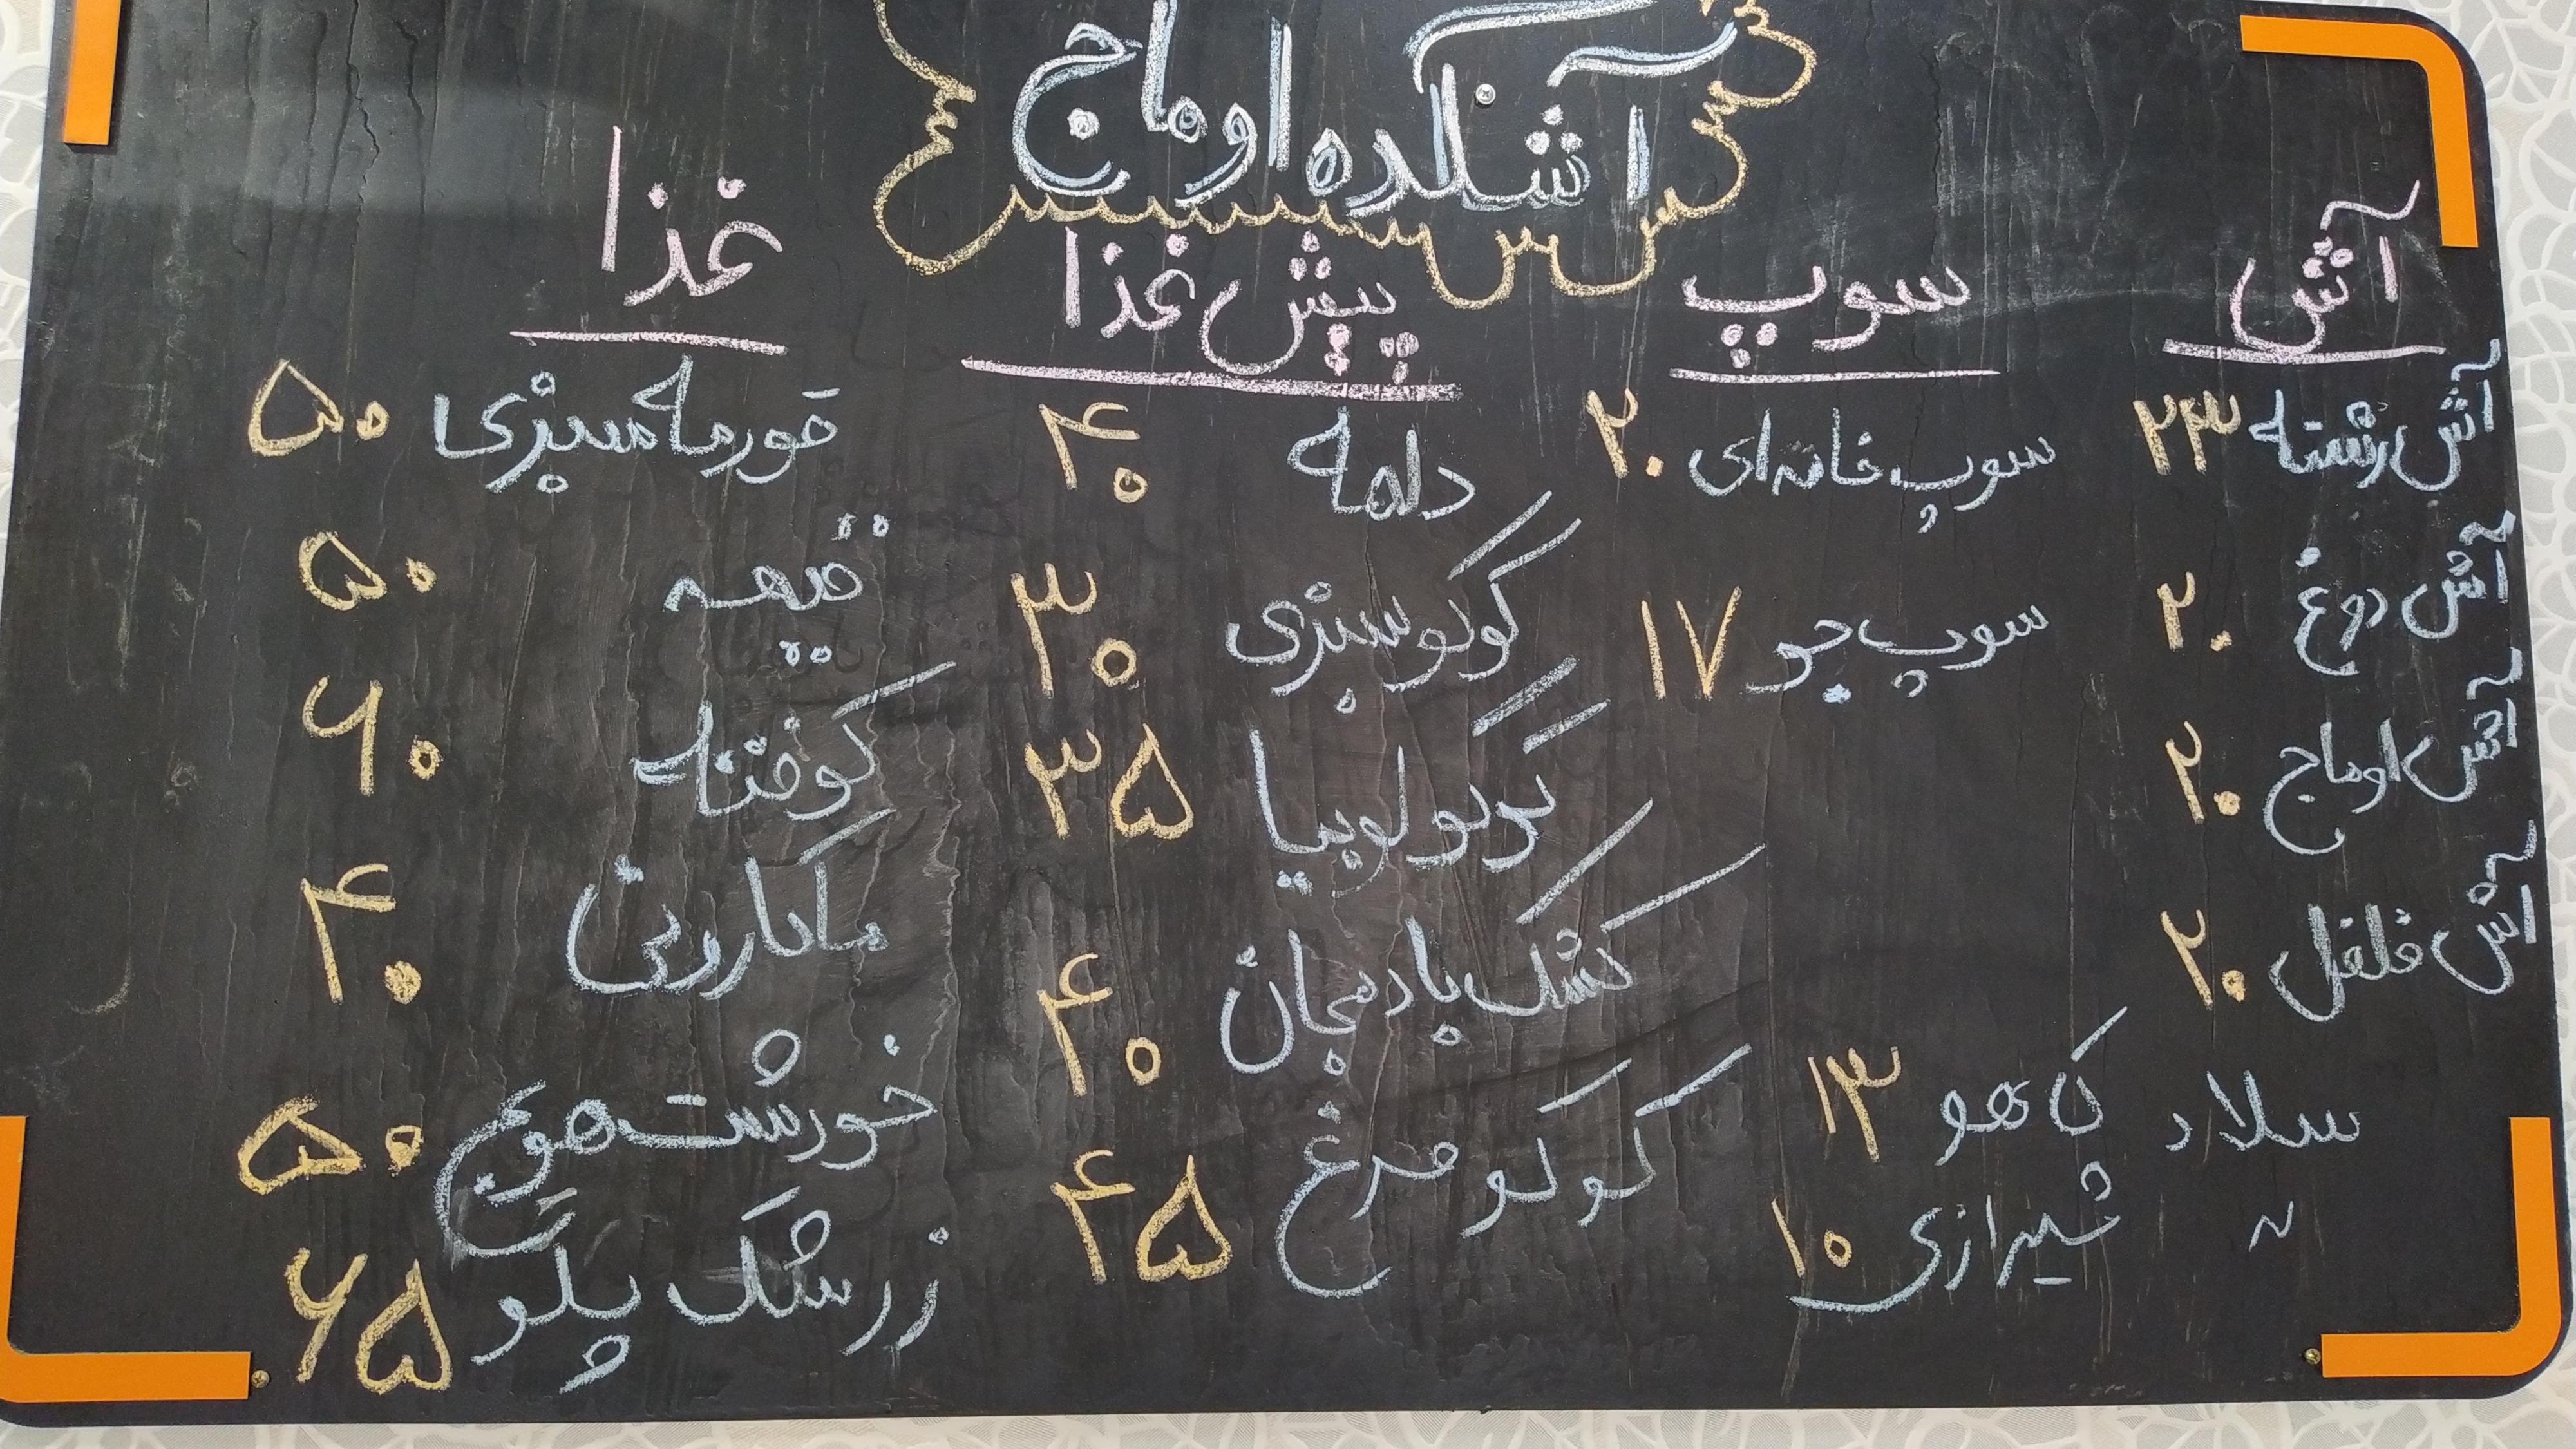 آشکده اوماج
آش
آش رشته ۲۳
آش دوغ ۲۰
آش اوماج ۲۰
آش فلفل ۲۰
سوپ
سوپ خانه‌ای ۲۰
سوپ جو ۱۷
سلاد کاهو ۱۳
〃 شیرازی ۱۰
پیش غذا
دلمه ۴۰
کوکو سبزی ۳۰
کوکو لوبیا ۳۵
کشک بادمجان ۴۰
کوکو مرغ ۴۵
غذا
قورمه سبزی ۵۰
قیمه ۵۰
کوفته ۶۰
ماکارونی ۴۰
خورشت هویج ۵۰
زرشک پلو ۶۵